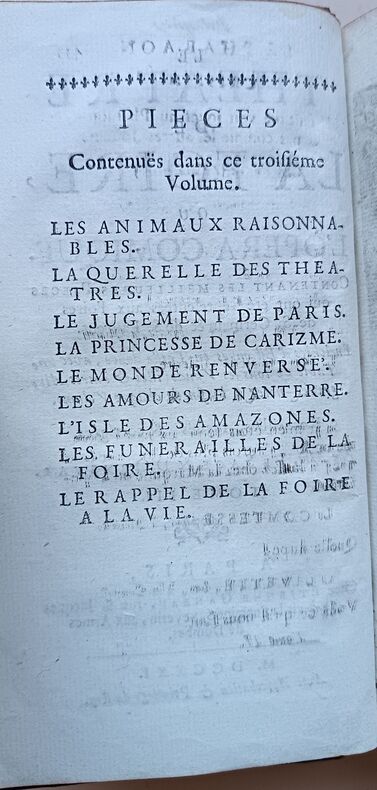 PIECES
Contenuës dans ce troisiéme
Volume.
LES ANIMAUX RAISONNA-
BLES.
LA QUERELLE DES THEA-
TRES.
LE JUGEMENT DE PARIS.
LA PRINCESSE DE CARIZME.
LE MONDE RENVERSE'.
LES AMOURS DE NANTERRE.
L'ISLE DES AMAZONES.
LES FUNERAILLES DE LA
FOIRE.
LE RAPPEL DE LA FOIRE
A LA VIE.